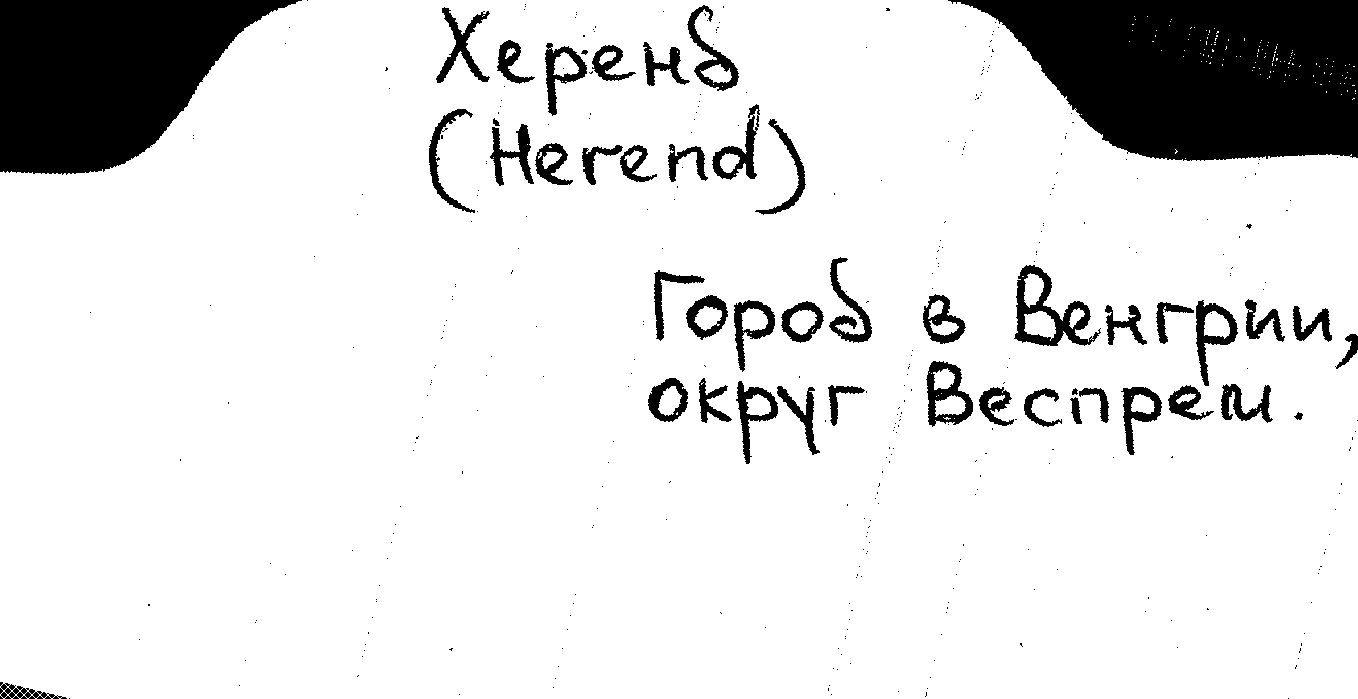 Херенд
(Herend)
Город в Венгрии,
округ Веспрем.